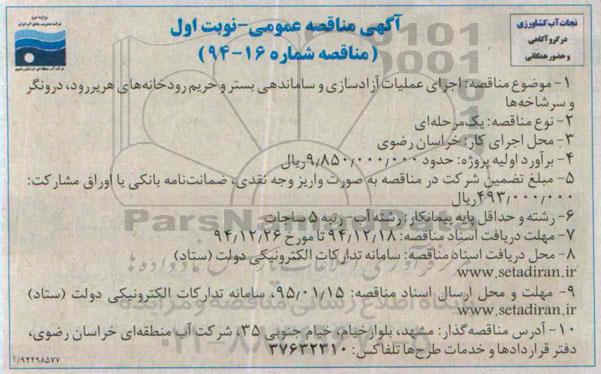 نجات آب کشاورزی
در گرو آگاهی
و حضور همگانی
آگهی مناقصه عمومی-نوبت اول
(مناقصه شماره ۱۶-۹۴)
وزارت نیرو
۱- موضوع مناقصه: اجرای عملیات آزادسازی و ساماندهی بستر و حریم رودخانه‌های هریرود، درونگر
و سرشاخه‌ها
۲- نوع مناقصه: یک‌مرحله‌ای
۳- محل اجرای کار: خراسان رضوی
۴- برآورد اولیه پروژه: حدود ۹٫۸۵۰٫۰۰۰٫۰۰۰ ریال
۵- مبلغ تضمین شرکت در مناقصه به صورت واریز وجه نقدی، ضمانت‌نامه بانکی یا اوراق مشارکت:
۴۹۳٫۰۰۰٫۰۰۰ ریال
۶- رشته و حداقل پایه پیمانکار: رشته آب - رتبه ۵ ساجات
۷- مهلت دریافت اسناد مناقصه: ۹۴٫۱۲٫۱۸ تا مورخ ۹۴٫۱۲٫۲۶
۸- محل دریافت اسناد مناقصه: سامانه تدارکات الکترونیکی دولت (ستاد)
www.setadiran.ir
۹- مهلت و محل ارسال اسناد مناقصه: ۹۵٫۰۱٫۱۵، سامانه تدارکات الکترونیکی دولت (ستاد)
www.setadiran.ir
۱۰- آدرس مناقصه‌گذار: مشهد، بلوار خیام، خیام جنوبی ۳۵، شرکت آب منطقه‌ای خراسان رضوی،
دفتر قراردادها و خدمات طرح‌ها تلفاکس: ۳۷۶۳۲۳۱۰
ParsNamadData